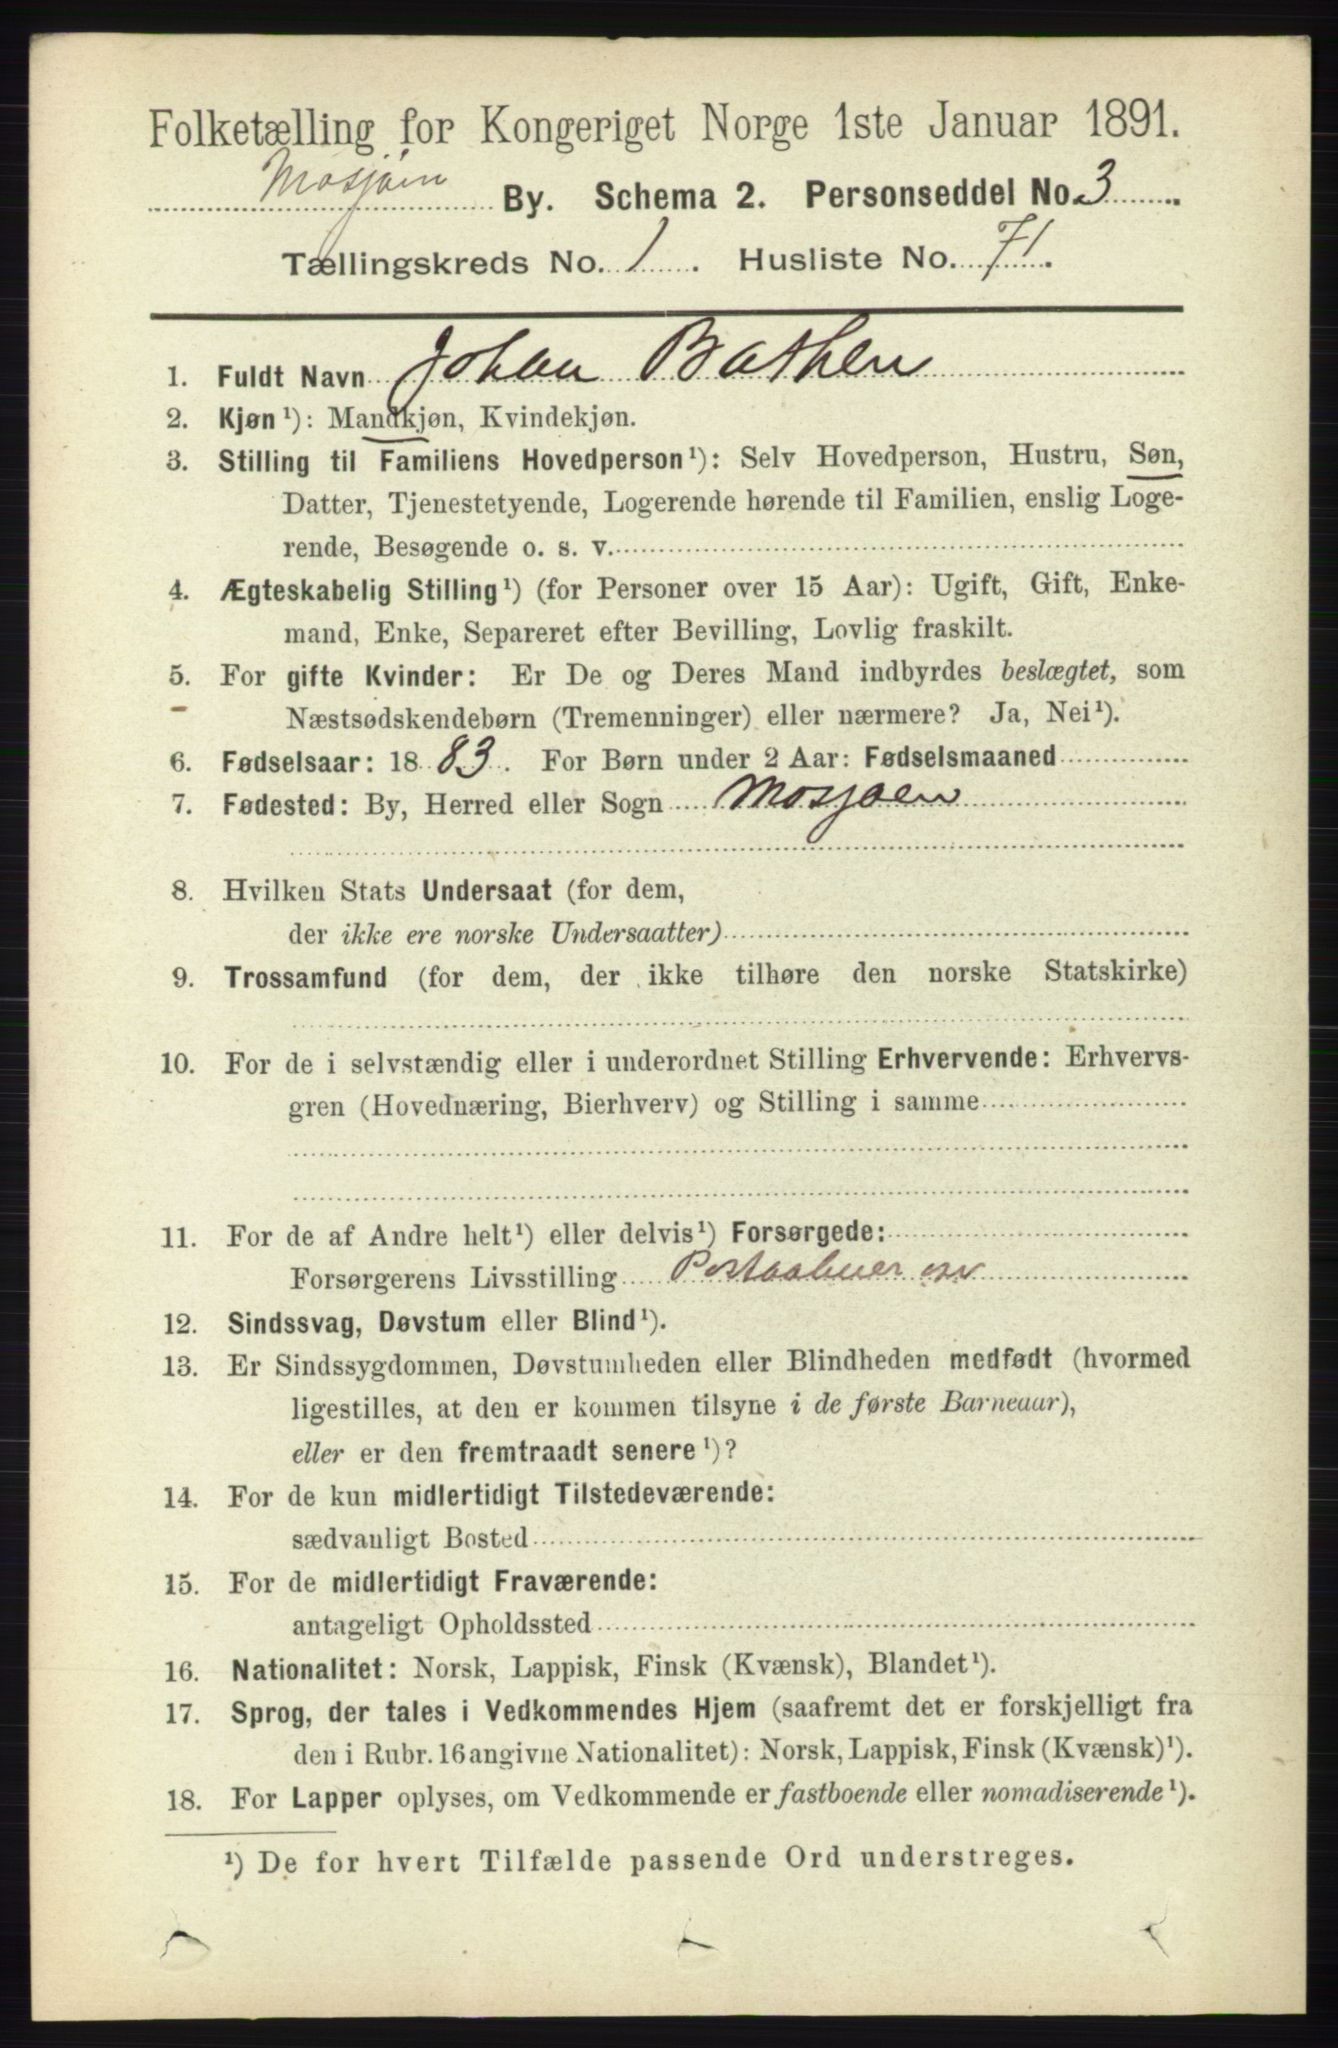 Folketælling for Kongeriget Norge 1ste Januar 1891.
Mosjøen By. Schema 2. Personseddel No. 3
Tællingskreds No. 1. Husliste No. 71.
1. Fuldt Navn Johan Bathen
2. Kjøn ¹): Mandkjøn, Kvindekjøn.
3. Stilling til Familiens Hovedperson¹): Selv Hovedperson, Hustru, Søn,
Datter, Tjenestetyende, Logerende hørende til Familien, enslig Loge-
rende, Besøgende o. s. v.
4. Ægteskabelig Stilling¹) (for Personer over 15 Aar): Ugift, Gift, Enke-
mand, Enke, Separeret efter Bevilling, Lovlig fraskilt.
5. For gifte Kvinder: Er De og Deres Mand indbyrdes beslægtet, som
Næstsødskendebørn (Tremenninger) eller nærmere? Ja, Nei¹).
6. Fødselsaar: 1883. For Børn under 2 Aar: Fødselsmaaned
7. Fødested: By, Herred eller Sogn Mosjøen
8. Hvilken Stats Undersaat (for dem,
der ikke ere norske Undersaatter)
9. Trossamfund (for dem, der ikke tilhøre den norske Statskirke)
10. For de i selvstændig eller i underordnet Stilling Erhvervende: Erhvervs-
gren (Hovednæring, Bierhverv) og Stilling i samme
11. For de af Andre helt¹) eller delvis¹) Forsørgede:
Forsørgerens Livsstilling Postaabner osv
12. Sindssvag, Døvstum eller Blind¹).
13. Er Sindssygdommen, Døvstumheden eller Blindheden medfødt (hvormed
ligestilles, at den er kommen tilsyne i de første Barneaar),
eller er den fremtraadt senere ¹)?
14. For de kun midlertidigt Tilstedeværende:
sædvanligt Bosted
15. For de midlertidigt Fraværende:
antageligt Opholdssted
16. Nationalitet: Norsk, Lappisk, Finsk (Kvænsk), Blandet¹).
17. Sprog, der tales i Vedkommendes Hjem (saafremt det er forskjelligt fra
den i Rubr. 16 angivne Nationalitet): Norsk, Lappisk, Finsk (Kvænsk)¹).
18. For Lapper oplyses, om Vedkommende er fastboende eller nomadiserende ¹).
¹) De for hvert Tilfælde passende Ord understreges.